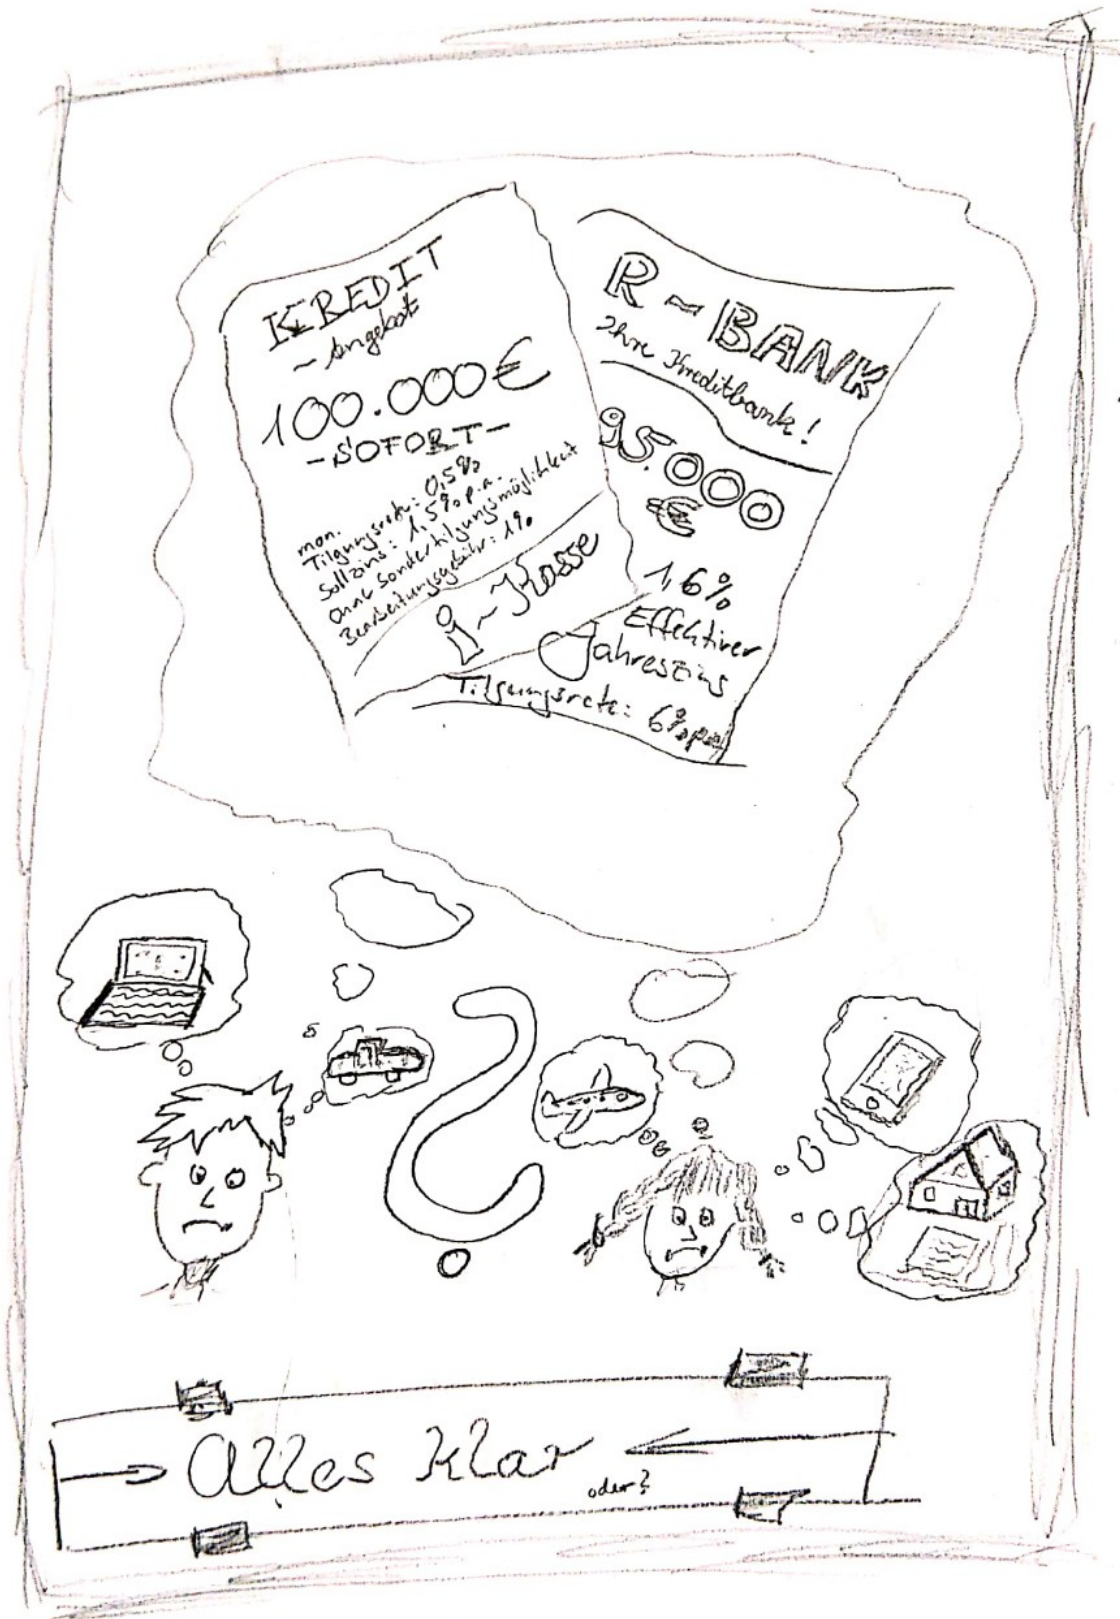 KREDIT
- Angebot
100.000 €
- SOFORT -
mon.
Tilgungsrate: 0,5%
Sollzins: 1,5% p.a.
Ohne Sondertilgungsmöglichkeit
Bearbeitungsgebühr: 1%
j-Kasse
R-BANK
Ihre Kreditbank!
95.000
€
1,6%
Effektiver
Jahreszins
Tilgungsrate: 6%
Alles klar
oder?